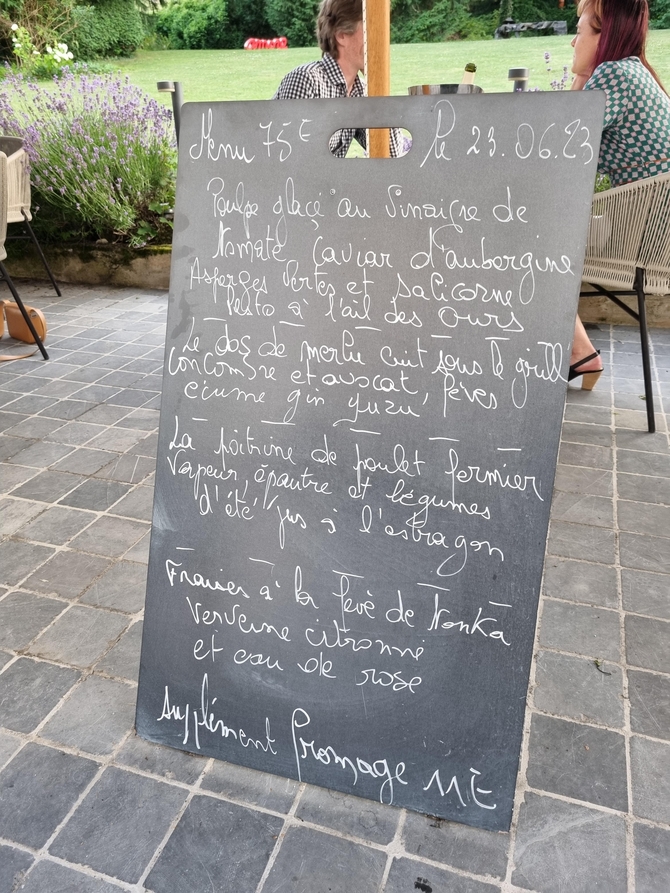 Menu 75€ le 23.06.23
Poulpe glacé au Vinaigre de
tomate caviar d'aubergine
Asperges Vertes et Salicorne
Pesto à l'ail des Ours
Le dos de merlu cuit sous le grill
concombre et avocat, fèves
écume gin yuzu
La poitrine de poulet fermier
Vapeur, épautre et légumes
d'été, jus à l'estragon
Fraises à la fève de tonka
Verveine citronné
et eau de rose
Supplément fromage 11€